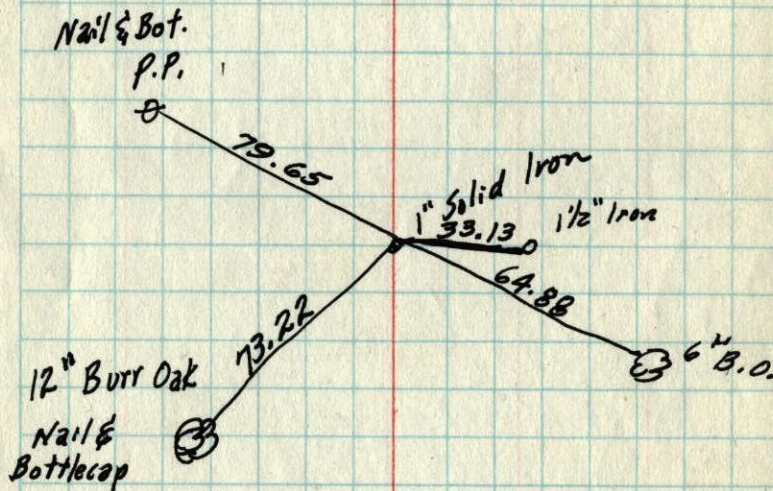 Nail & Bot.
P.P.
79.65
1" Solid Iron
33.13
1 1/2" Iron
64.88
73.22
12" Burr Oak
6" B.O.
Nail &
Bottlecap